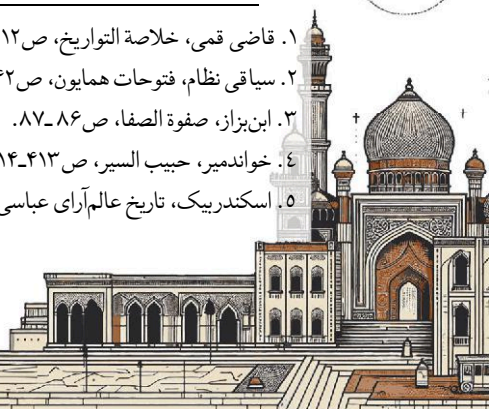 ۱. قاضی قمی، خلاصة التواریخ، ص۱۲
۲. سیاقی نظام، فتوحات همایون، ص
۳. ابن‌بزاز، صفوة الصفا، ص۸۶ـ۸۷.
٤. خواندمیر، حبیب السیر، ص۴۱۳ـ۴۱۴
٥. اسکندربیک، تاریخ عالم‌آرای عباسی